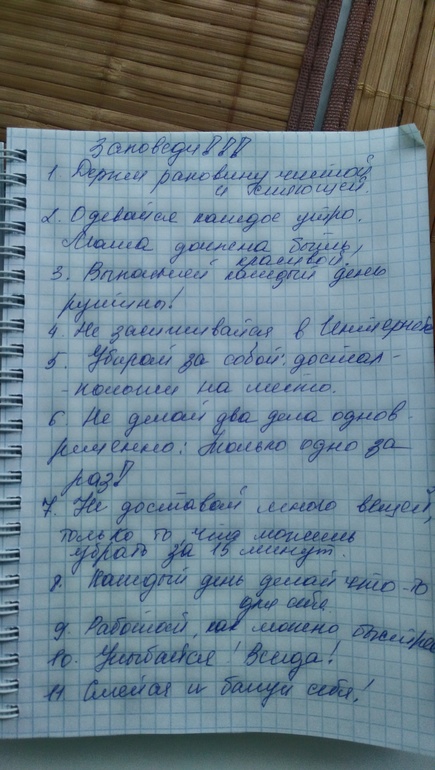 Заповеди!!!
1. Держи раковину чистой
и сияющей.
2. Одевайся каждое утро.
Мама должна быть
красивой.
3. Выполняй каждый день
рутины!
4. Не засиживайся в Интернете
5. Убирай за собой: достал -
- положи на место.
6. Не делай два дела однов-
ременно: только одно за
раз!
7. Не доставай много вещей,
только то, что можешь
убрать за 15 минут.
8. Каждый день делай что-то
для себя.
9. Работай, как можно быстрее
10. Улыбайся! Всегда!
11 Смейся и балуй себя!